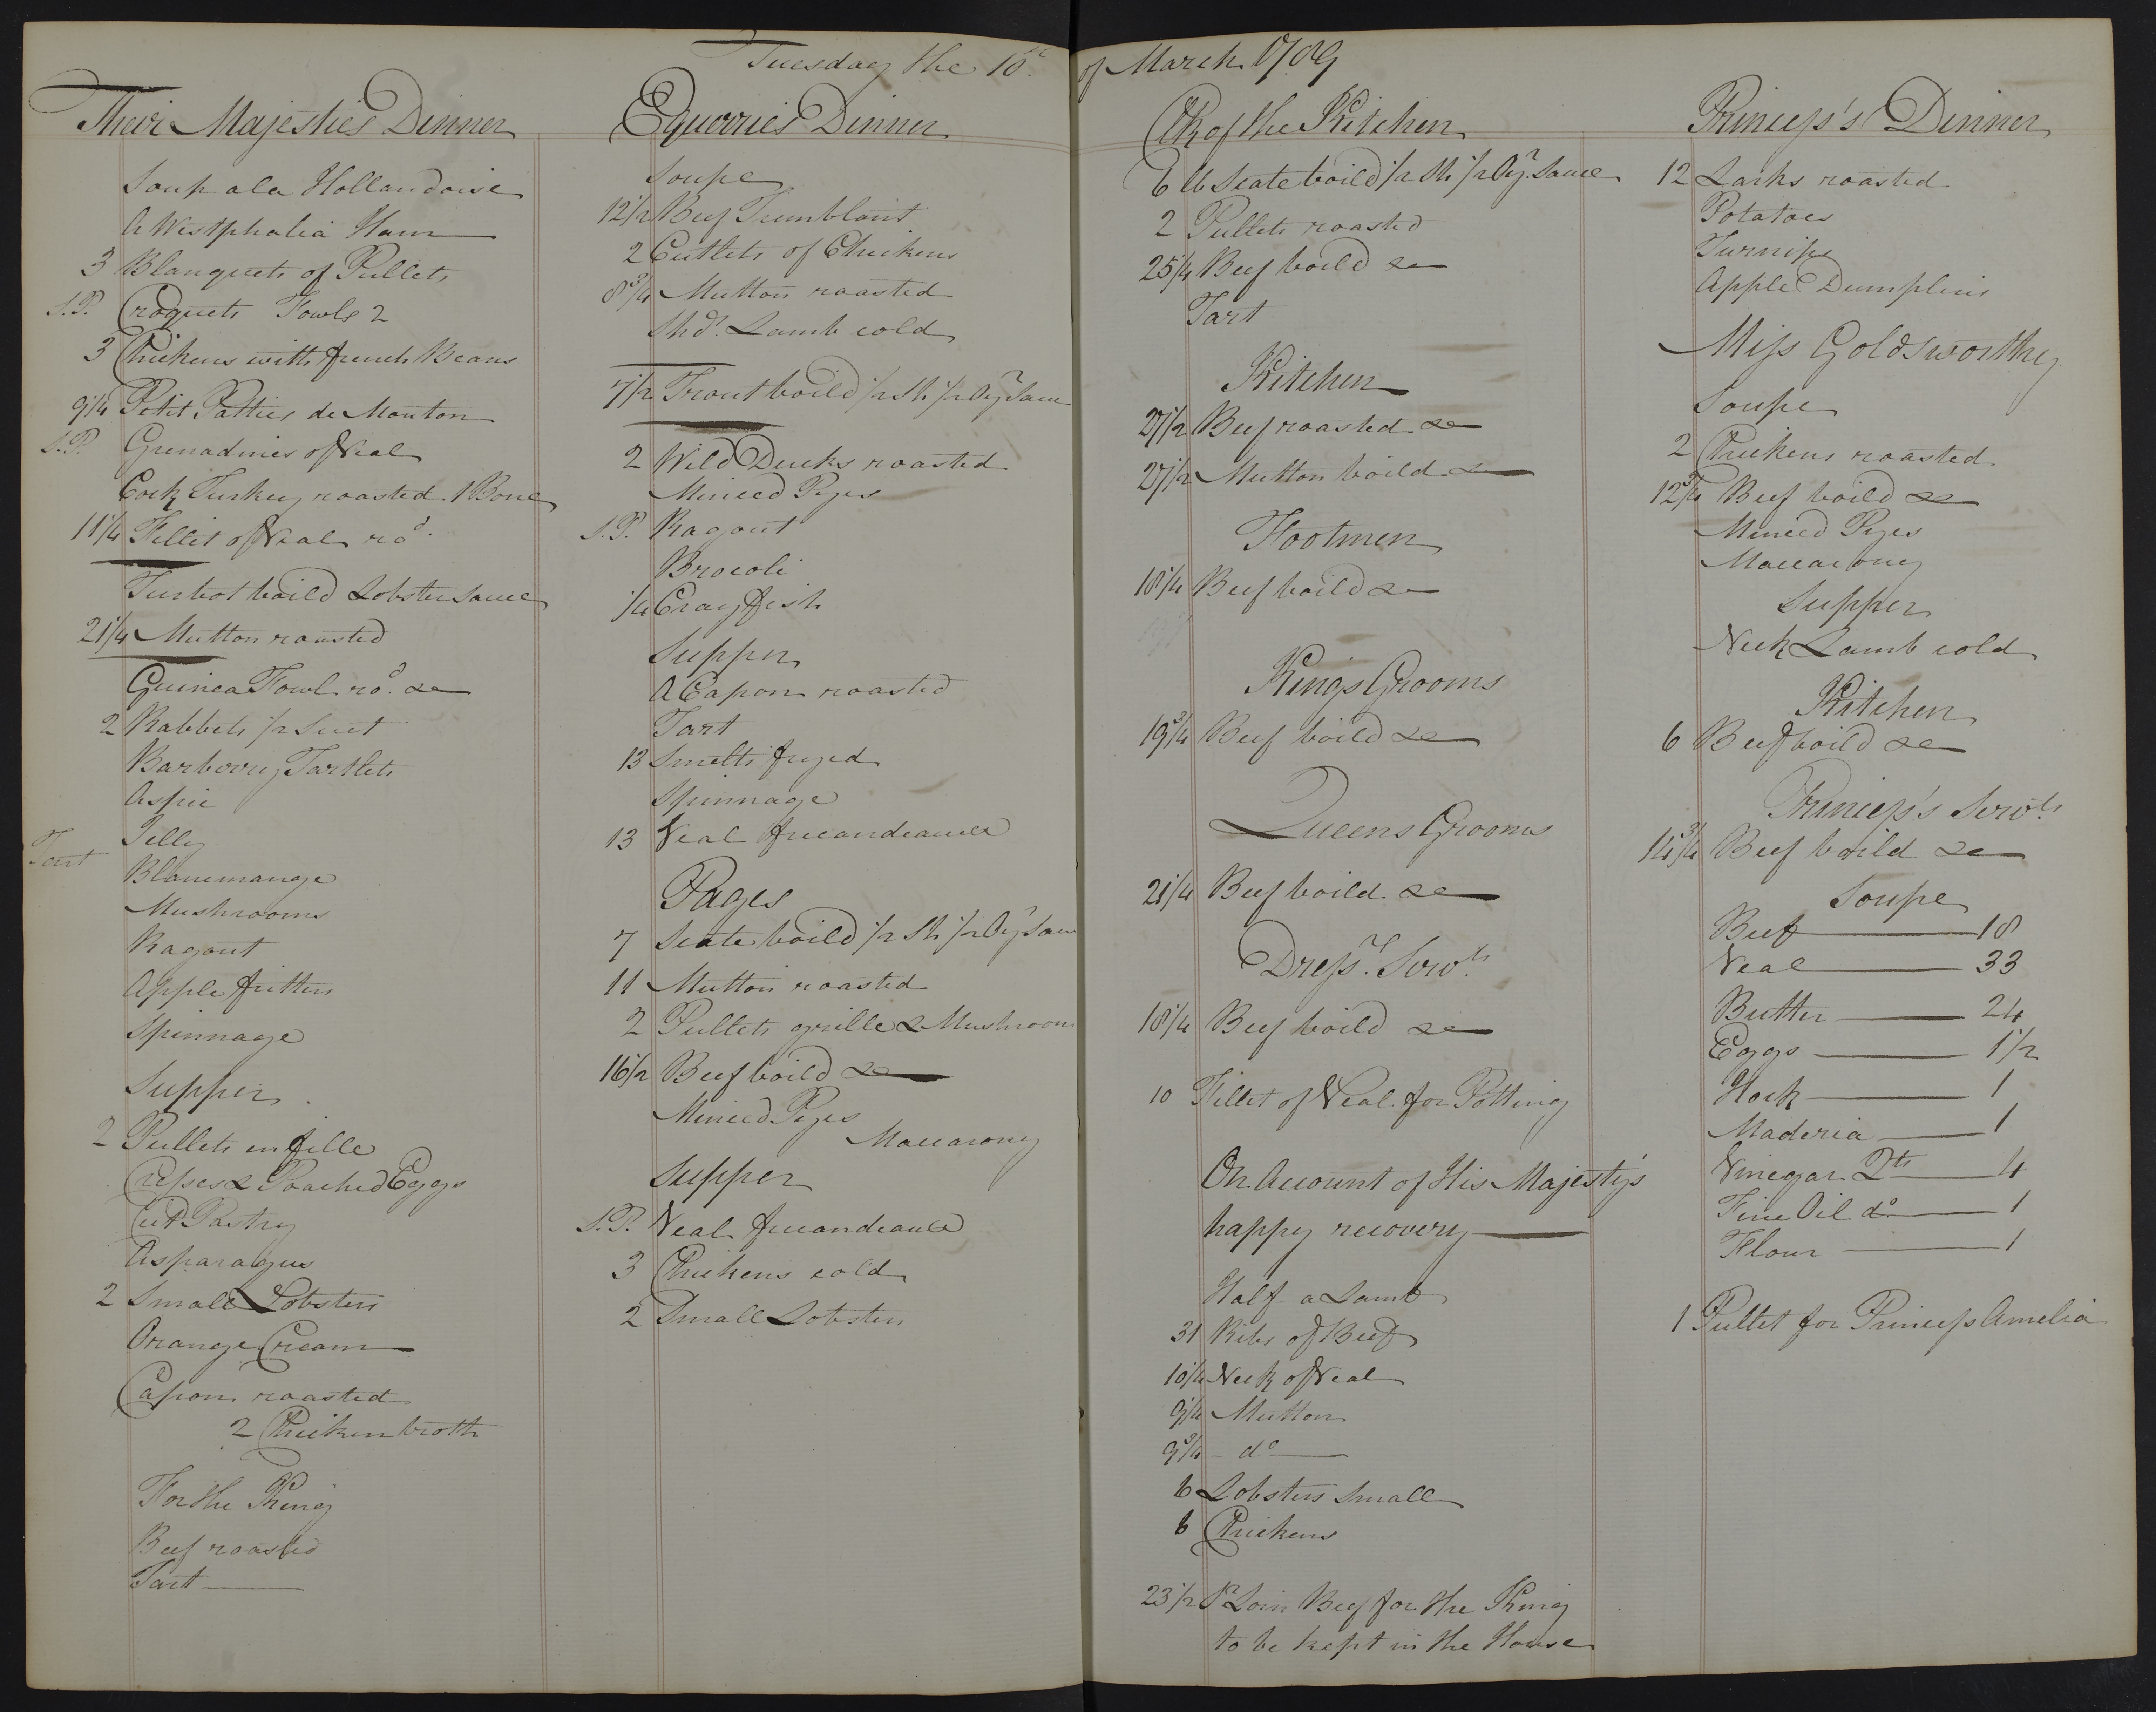 Tuesday the 10th of March 1789
Their Majesties Dinner
Soup ala Hollandoise
A Westphalia Ham
3 Blanquets of Pullets
S.P. Croquets Fowls 2
3 Chickens with french Beans
9 1/4 Petit Patties de Mouton
S.P. Grenadines of Veal
Cock Turkey roasted 1 Bone
11 1/4 Fillet of Veal rod.
Turbot boild Lobster Sauce
21/4 Mutton roasted
Guinea Fowl rod. &c
2 Rabbets 1/2 Suet
Barberry Tartlets
Aspic
Jelly
Tart
Blancmange
Mushrooms
Ragout
Apple fritters
Spinnage
Supper
2 Pullets en fille
Cresses & Poached Eggs
Cut Pastry
Asparagus
2 Small Lobsters
Orange Cream
Capon roasted
2 Chicken broth
For the King
Beef roasted
Tart
Equerries Dinner
Soupe
12 1/2 Beef Tremblant
2 Cutlets of Chickens
8 3/4 Mutton roasted
Shdr. Lamb cold
7 1/2 Trout boild 1/2 Sh 1/2 Oyr Sauce
2 Wild Ducks roasted
Minced Pyes
S.P. Ragout
Brocoli
1/4 Cray fish
Supper
A Capon roasted
Tart
13 Smelts fryed
Spinnage
13 Veal fricandeauce
Pages
7 Scate boild 1/2 Sh 1/2 Oyr Sauc
11 Mutton roasted
2 Pullets grille & Mushroom
16 1/2 Beef boild &c
Minced Pyes
Maccarony
Supper
S.P. Veal fricandeauce
3 Chickens cold
2 Small Lobsters
Clk of the Kitchen
6 lb Scate boild 1/2 Sh 1/2 Oyr. Sauce
2 Pullets roasted
25 1/4 Beef boild &c
Tart
Kitchen
27 1/2 Beef roasted &c
27 1/2 Mutton boild &c
Footmen
18 1/4 Beef boild &c
Kings Grooms
19 3/4 Beef boild &c
Queens Grooms
21 1/4 Beef boild &c
Dressr. Servts
18 1/4 Beef boild &c
10 Fillet of Veal for Potting
On Account of His Majesty's
happy recovery
Half a Lamb
31 Ribs of Beef
10 1/4 Neck of Veal
9 1/4 Mutton
9 3/4 - do
6 Lobsters Small
6 Chickens
23 1/2 Sr Loin Beef for the King
to be kept in the House
Princess's Dinner
12 Larks roasted
Potatoes
Turnips
Apple Dumplins
Miss Goldsworthy
Soupe
2 Chickens roasted
12 3/4 Beef boild &c
Minced Pyes
Maccarony
Supper
Neck Lamb cold
Kitchen
6 Beef boild &c
Princess's Servts
14 3/4 Beef boild &c
Soupe
Beef 18
Veal 33
Butter 24
Eggs 1 1/2
Hock 1
Maderia 1
Vinegar Qts 4
Fine Oil do 1
Flour 1
1 Pullet for Princess Amelia